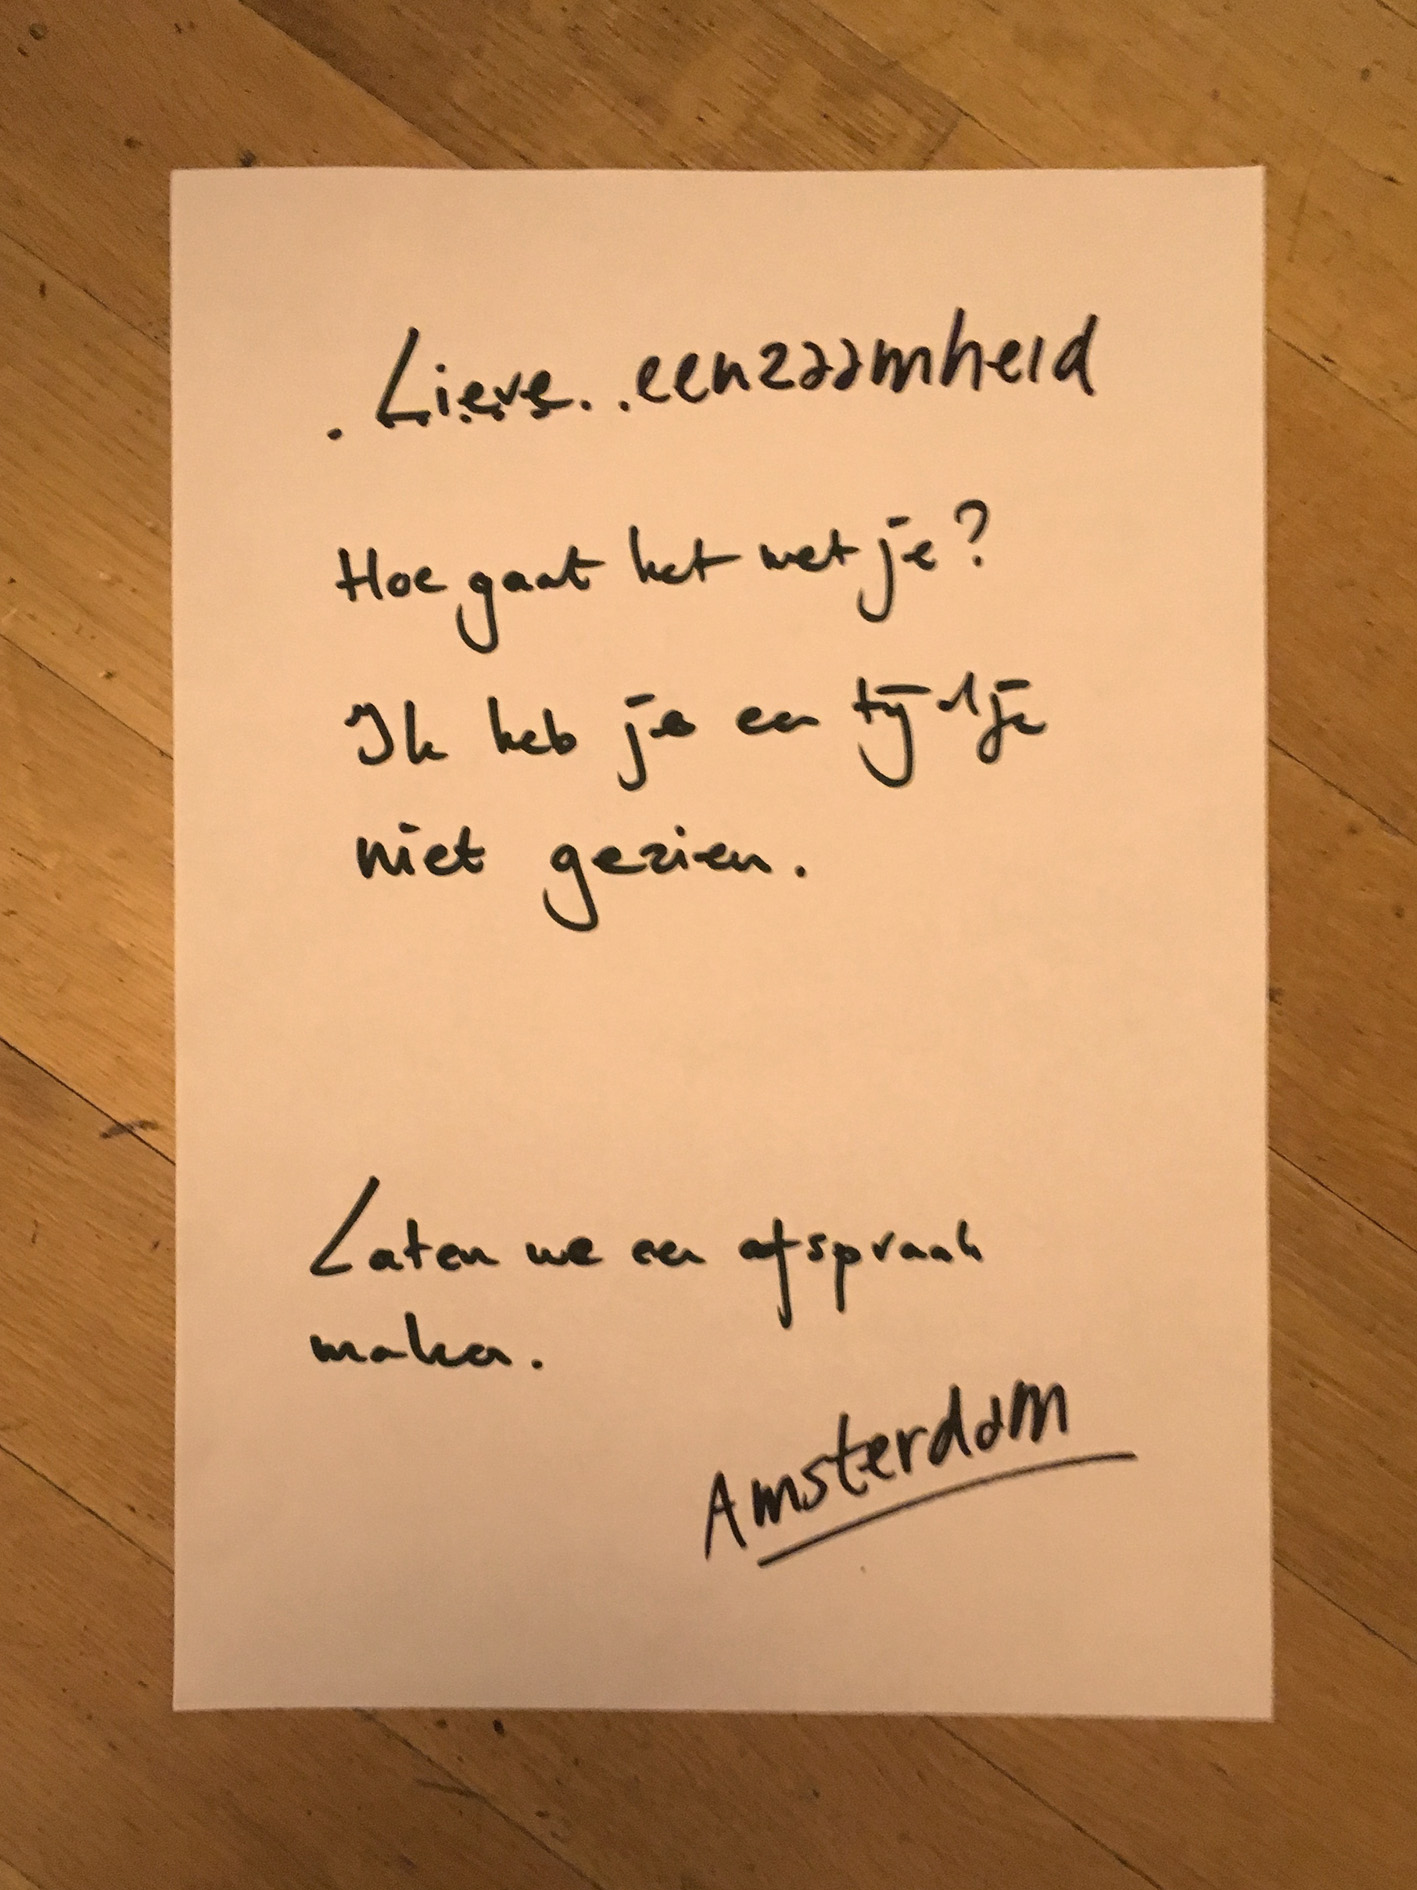 . Lieve. . eenzaamheid
Hoe gaat het met je?
Ik heb je een tijdje
niet gezien.
Laten we een afspraak
maken.
Amsterdam